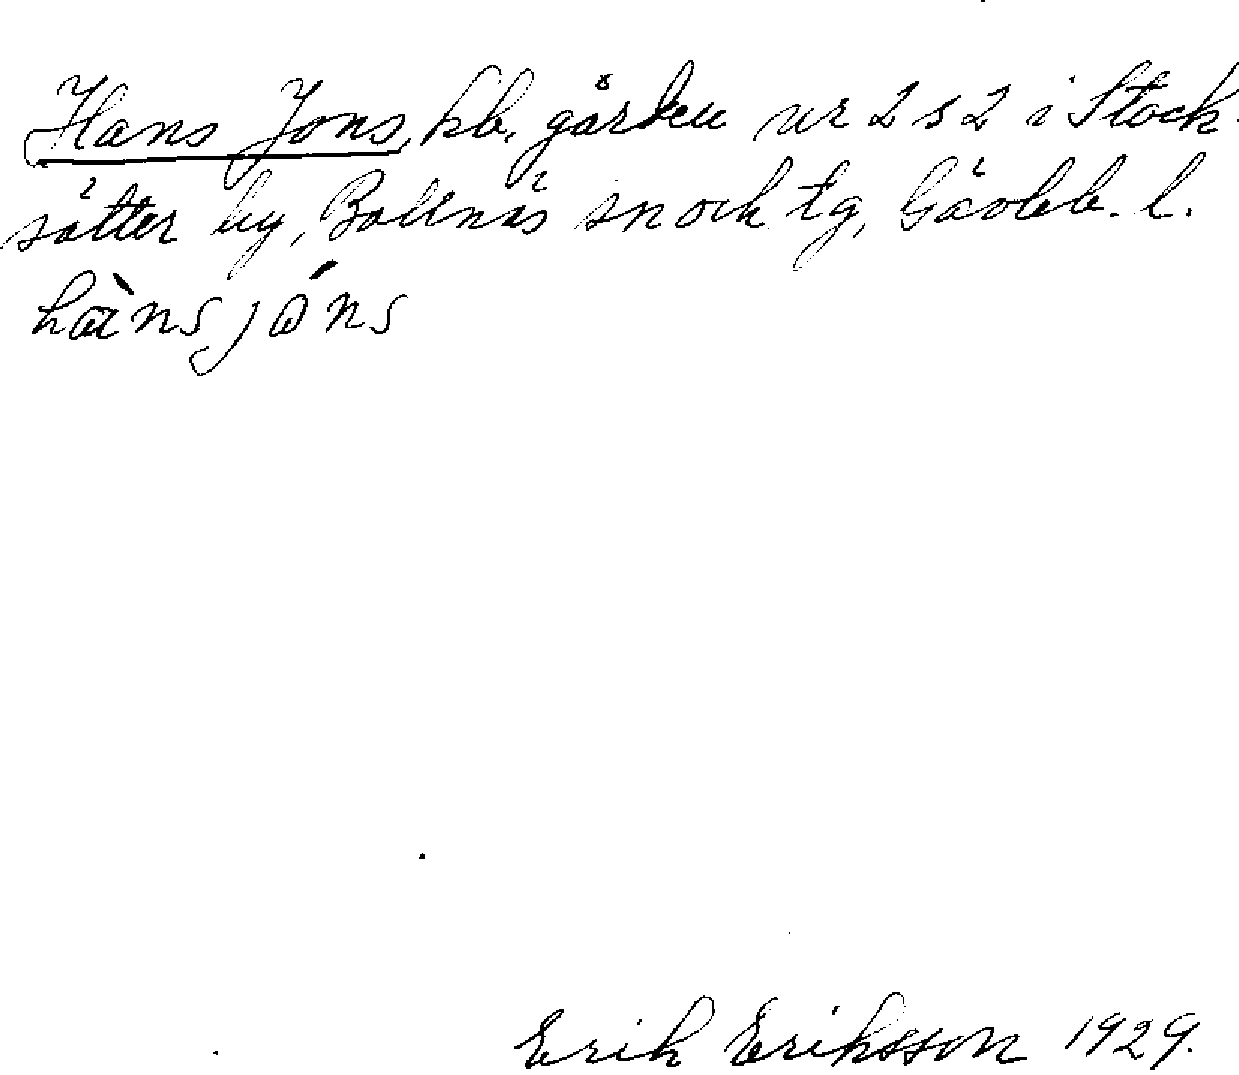 Hans Jons, hb. gården nr 2 s 2 i Stock-
sätter by, Bollnäs sn och tg, Gävleb. l.
hàns jóns
Erik Eriksson 1929.